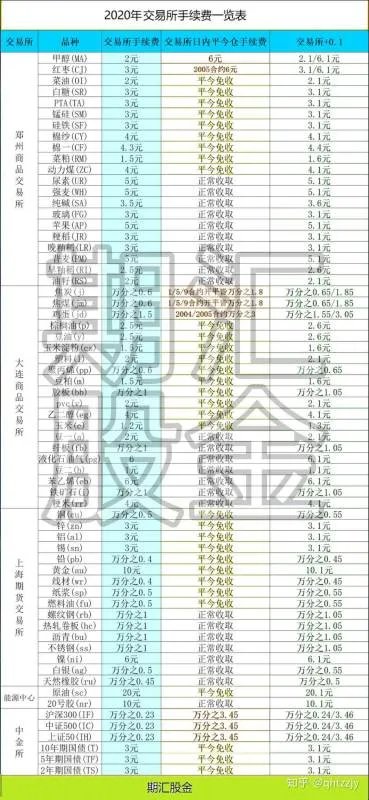 2020年交易所手续费一览表
交易所 品种 交易所手续费 交易所日内平今仓手续费 交易所+0.1
郑州商品交易所
甲醇(MA) 2元 6元 2.1/6.1元
红枣(CJ) 3元 2005合约6元 3.1/6.1元
菜油(OI) 2元 平今免收 2.1元
白糖(SR) 3元 平今免收 3.1元
PTA(TA) 3元 平今免收 3.1元
锰硅(SM) 3元 平今免收 3.1元
硅铁(SF) 3元 平今免收 3.1元
棉纱(CY) 4元 平今免收 4.1元
棉一(CF) 4.3元 平今免收 4.4元
菜粕(RM) 1.5元 平今免收 1.6元
动力煤(ZC) 4元 平今免收 4.1元
尿素(UR) 5元 正常收取 5.1元
强麦(WH) 5元 正常收取 5.1元
纯碱(SA) 3.5元 正常收取 3.6元
玻璃(FG) 3元 正常收取 3.1元
苹果(AP) 5元 正常收取 5.1元
粳稻(JR) 3元 正常收取 3.1元
晚籼稻(LR) 3元 正常收取 3.1元
普麦(PM) 5元 正常收取 5.1元
早籼稻(RI) 2.5元 正常收取 2.6元
油籽(RS) 2元 正常收取 2.1元
大连商品交易所
焦炭(j) 万分之0.6 1/5/9合约开平皆万分之1.8 万分之0.65/1.85
焦煤(jm) 万分之0.6 1/5/9合约开平皆万分之1.8 万分之0.65/1.85
鸡蛋(jd) 万分之1.5 2004/2005合约万分之3 万分之1.55/3.05
棕榈油(p) 2.5元 平今免收 2.6元
豆油(y) 2.5元 平今免收 2.6元
玉米淀粉(cs) 1.5元 平今免收 1.6元
塑料(l) 2元 平今免收 2.1元
聚丙烯(pp) 万分之0.6 平今免收 万分之0.65
豆粕(m) 1.5元 平今免收 1.6元
胶板(bb) 万分之1 平今免收 万分之1.05
pvc(v) 2元 平今免收 2.1元
乙二醇(eg) 4元 平今免收 4.1元
玉米(c) 1.2元 平今免收 1.3元
豆一(a) 2元 正常收取 2.1元
纤板(fb) 万分之1 正常收取 万分之1.05
液化石油气(pg) 6 正常收取 6.1元
豆二(b) 1元 正常收取 1.1元
苯乙烯(eb) 6元 正常收取 6.1元
铁矿石(i) 万分之1 正常收取 万分之1.05
粳米(rr) 4元 正常收取 4.1元
上海期货交易所
铜(cu) 万分之0.5 平今免收 万分之0.55
锌(zn) 3元 平今免收 3.1元
铝(al) 3元 平今免收 3.1元
锡(sn) 3元 平今免收 3.1元
铅(pb) 万分之0.4 平今免收 万分之0.45
黄金(au) 10元 平今免收 10.1元
线材(wr) 万分之0.4 平今免收 万分之0.45
纸浆(sp) 万分之0.5 平今免收 万分之0.55
燃料油(fu) 万分之0.5 平今免收 万分之0.55
螺纹钢(rb) 万分之1 正常收取 万分之1.05
热轧卷板(hc) 万分之1 正常收取 万分之1.05
沥青(bu) 万分之1 正常收取 万分之1.05
不锈钢(ss) 万分之1 正常收取 万分之1.05
镍(ni) 6元 正常收取 6.1元
白银(ag) 万分之0.5 正常收取 万分之0.55
天然橡胶(ru) 万分之0.45 正常收取 万分之0.5
能源中心
原油(sc) 20元 平今免收 20.1元
20号胶(nr) 10元 正常收取 10.1元
中金所
沪深300(IF) 万分之0.23 万分之3.45 万分之0.24/3.46
中证500(IC) 万分之0.23 万分之3.45 万分之0.24/3.46
上证50(IH) 万分之0.23 万分之3.45 万分之0.24/3.46
10年期国债(T) 3元 平今免收 3.1元
5年期国债(TF) 3元 平今免收 3.1元
2年期国债(TS) 3元 平今免收 3.1元
期汇股金
期汇股金
知乎 @qhtzzjy